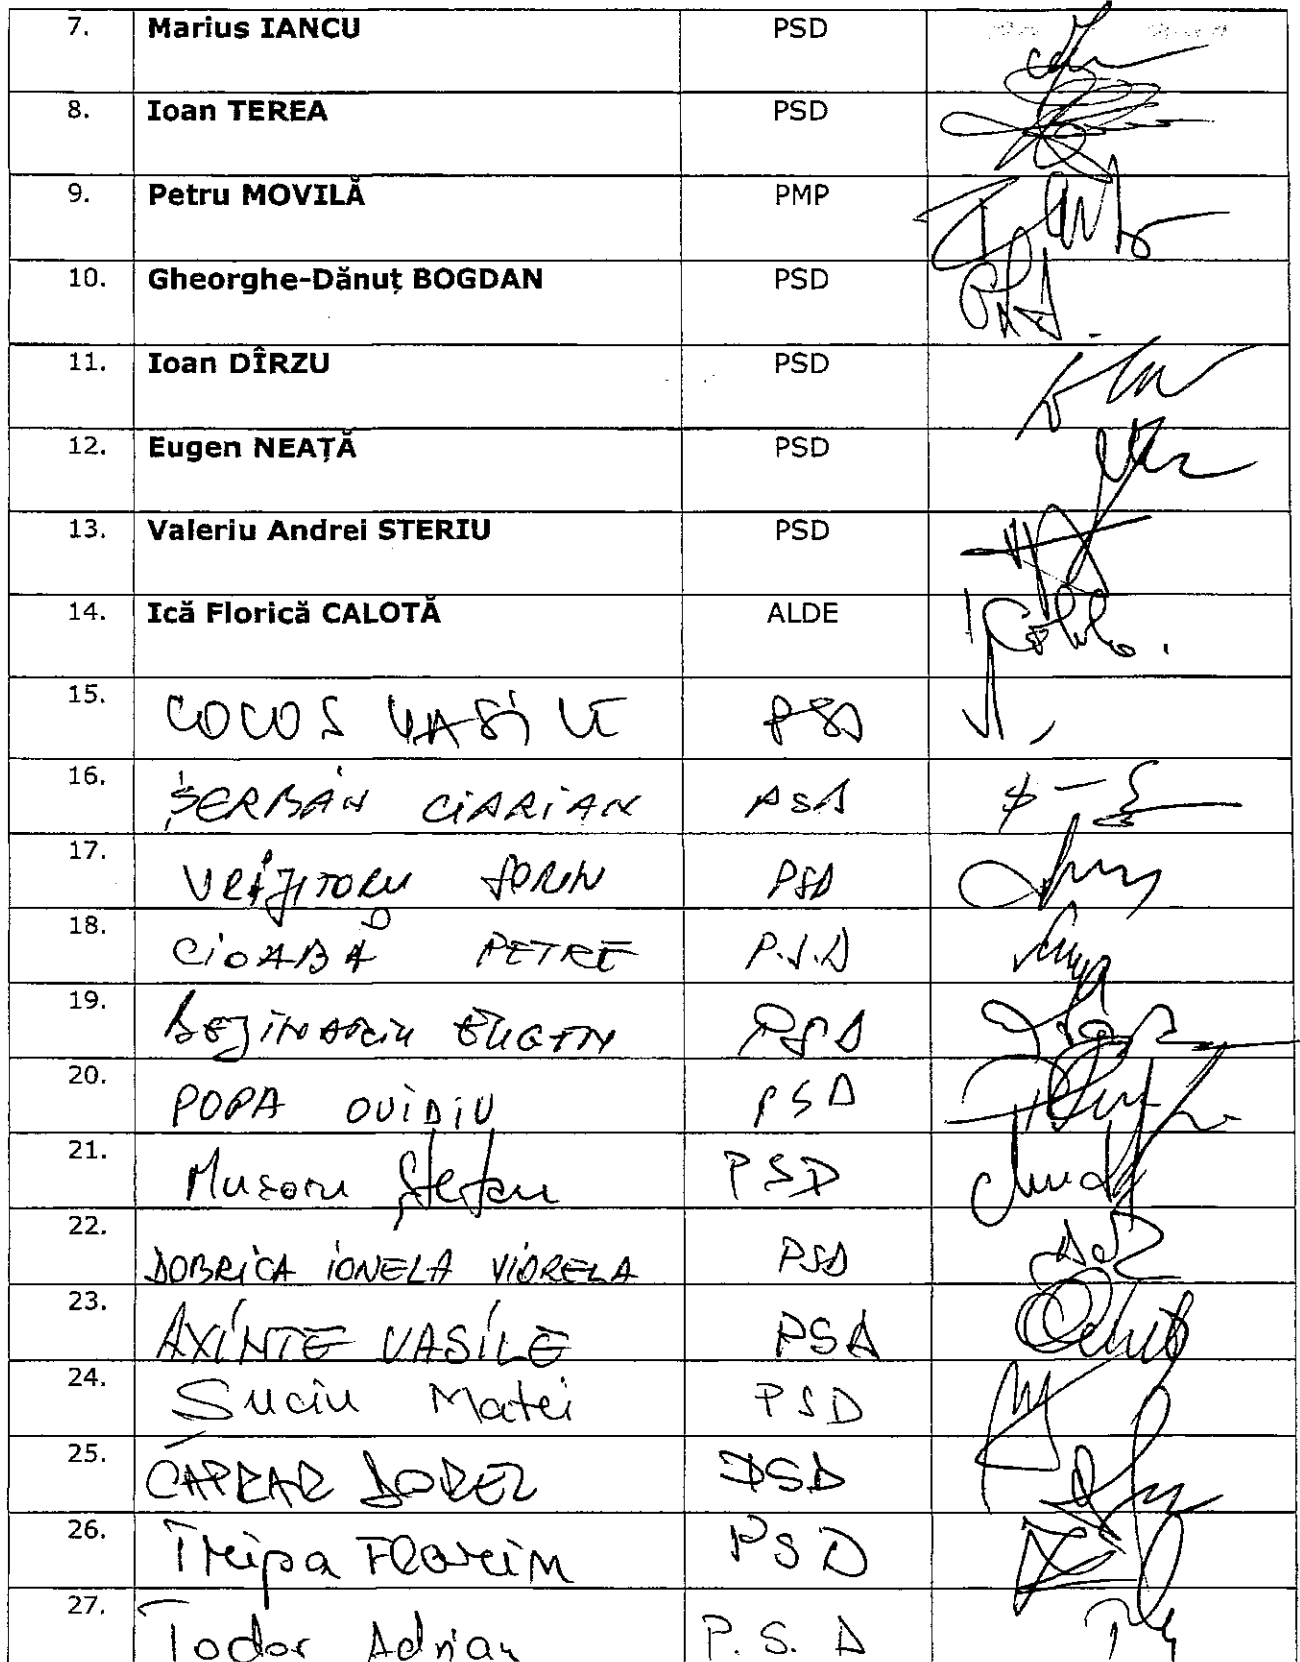 7. Marius IANCU PSD
8. Ioan TEREA PSD
9. Petru MOVILĂ PMP
10. Gheorghe-Dănuț BOGDAN PSD
11. Ioan DÎRZU PSD
12. Eugen NEAȚĂ PSD
13. Valeriu Andrei STERIU PSD
14. Ică Florică CALOTĂ ALDE
15. COCOS VASILE PSD
16. ȘERBAN CIARIAN PSD
17. VRĂJITORU SORIN PSD
18. CIOABĂ PETRE P.S.D
19. BEJINARIU EUGEN PSD
20. POPA OVIDIU PSD
21. Musoiu Ștefan PSD
22. DOBRICA IONELA VIORELA PSD
23. AXINTE VASILE PSD
24. Suciu Matei PSD
25. CAPRAR DOREL PSD
26. Tripa Florin PSD
27. Todor Adrian P. S. D